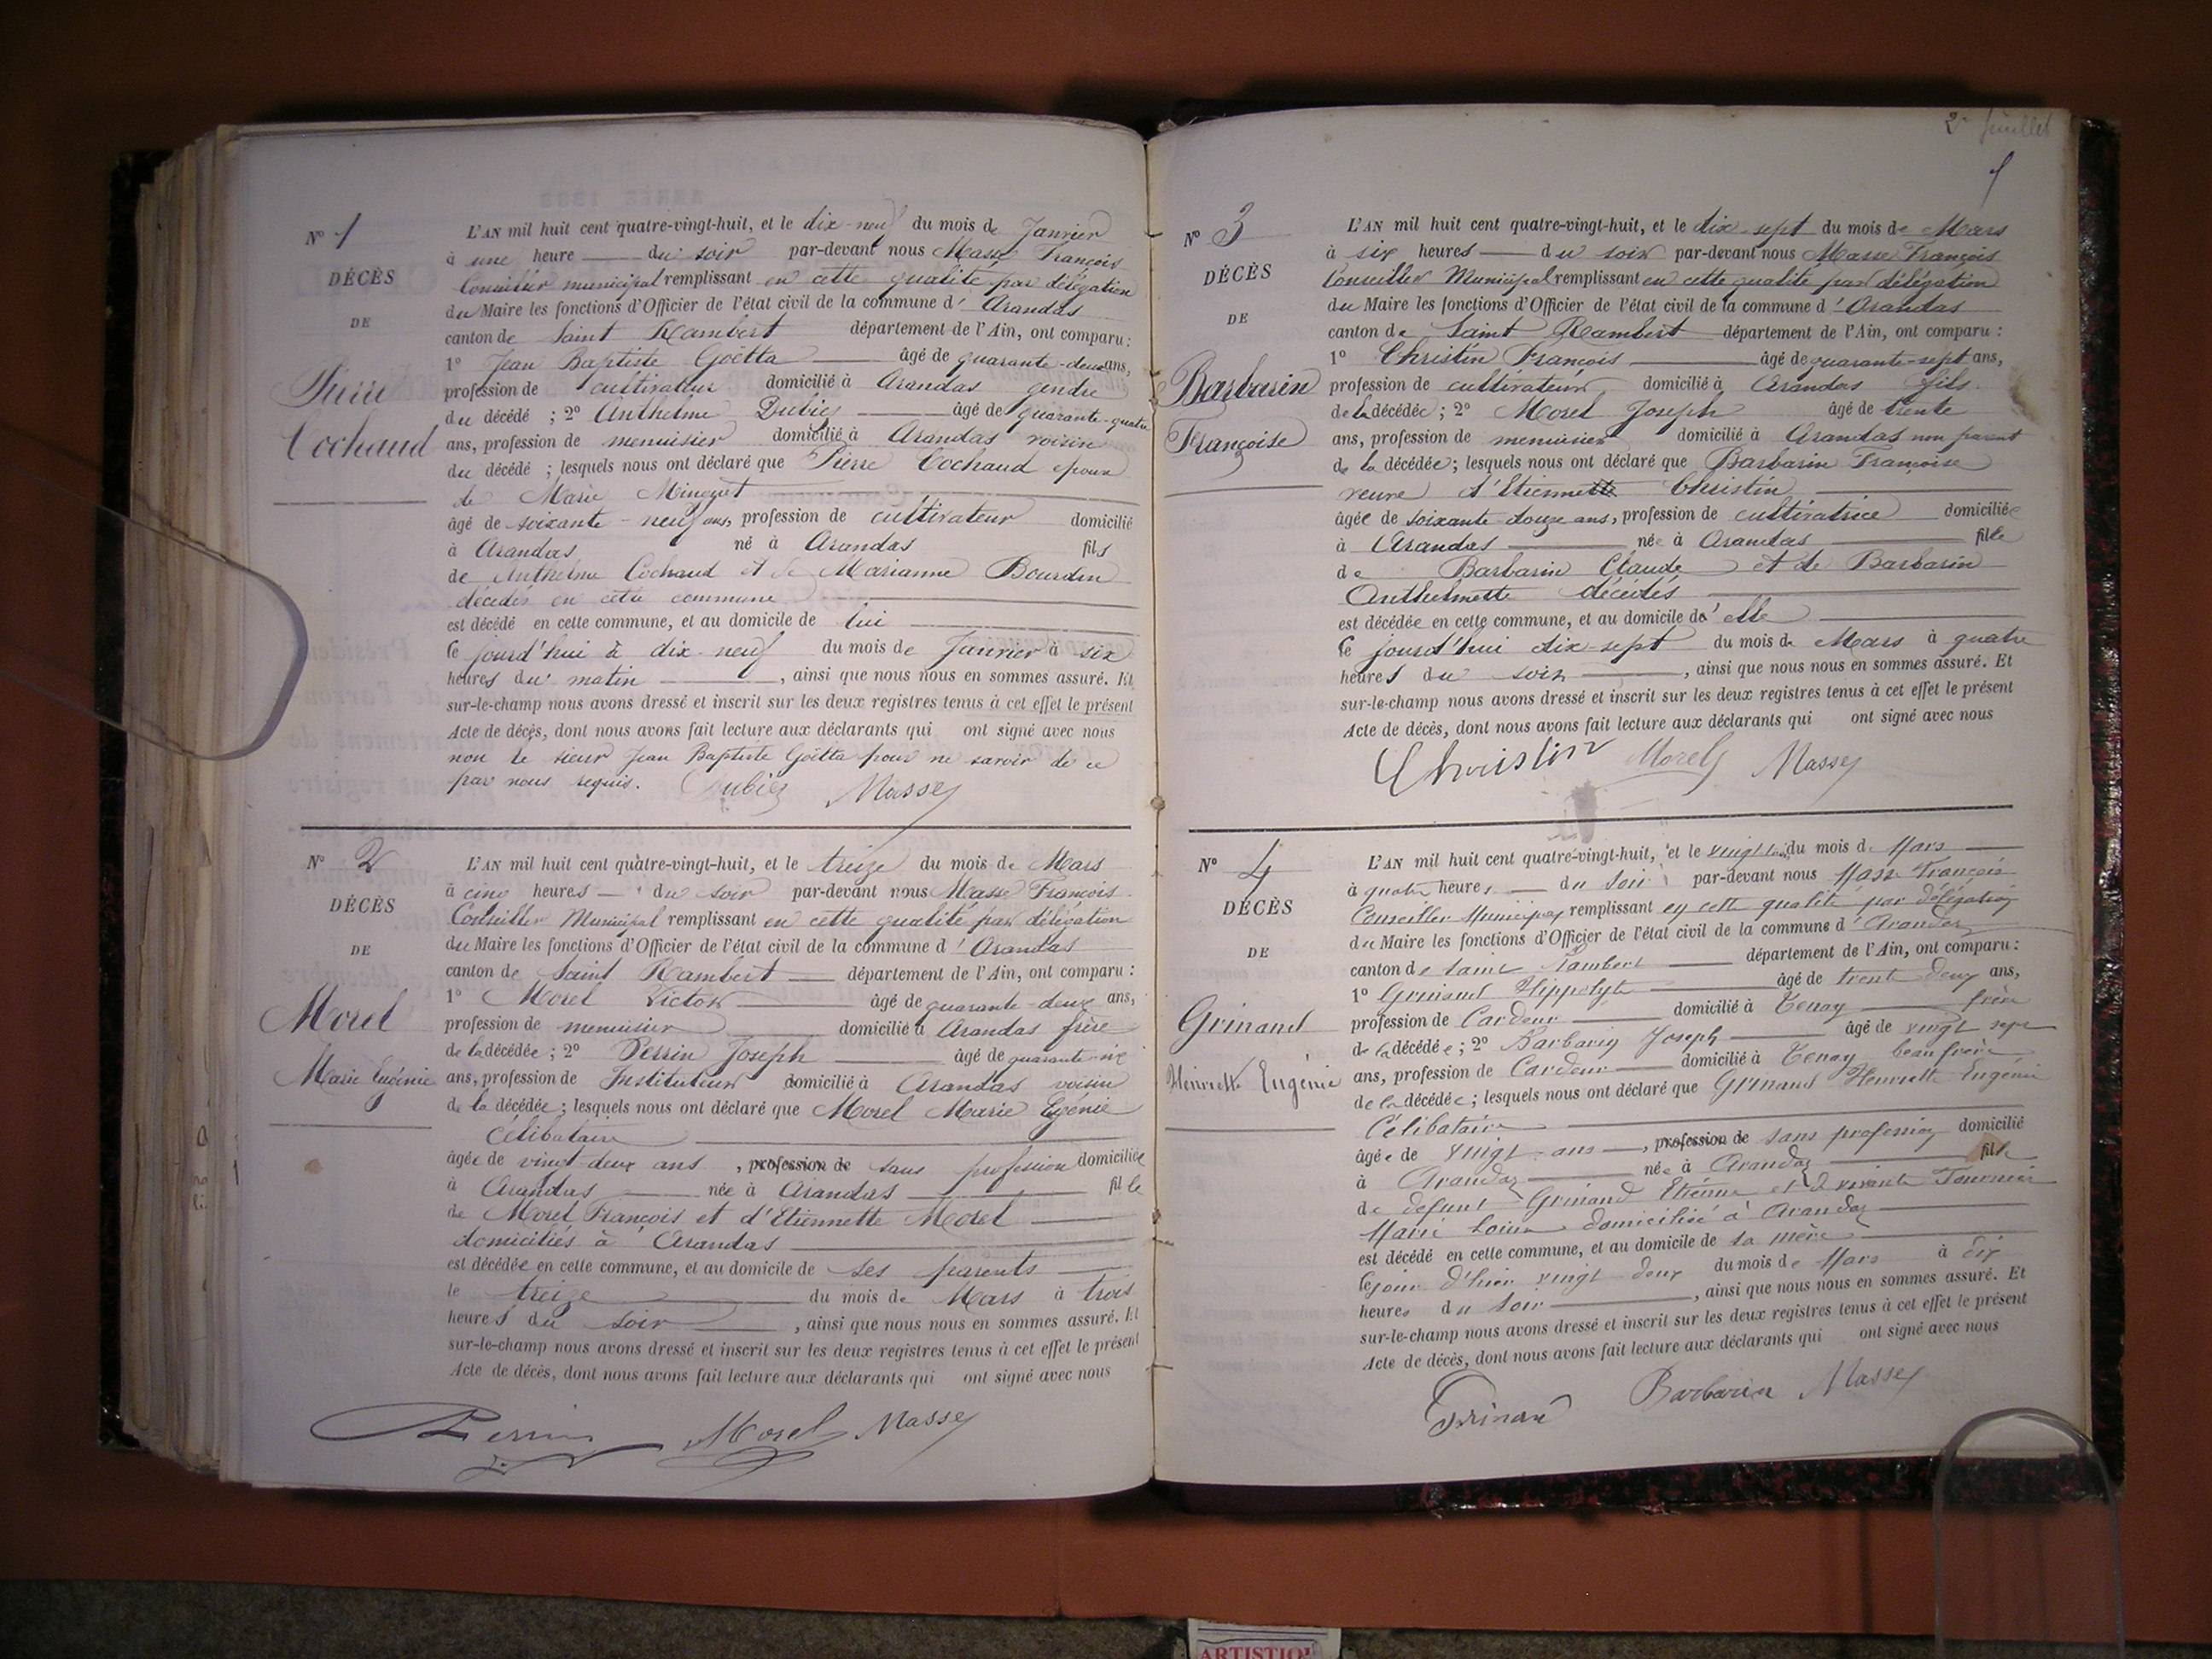 N° 1
DÉCÈS
DE
Pierre
Cochaud
L'AN mil huit cent quatre-vingt-huit, et le dix-neuf du mois de Janvier
à une heure du soir par-devant nous Masse François
Conseiller municipal remplissant en cette qualité par délégation
du Maire les fonctions d'Officier de l'état civil de la commune d' Arandas
canton de Saint Rambert département de l'Ain, ont comparu :
1° Jean Baptiste Goëtta âgé de quarante-deux ans,
profession de cultivateur domicilié à Arandas gendre
du décédé ; 2° Anthelme Dubiez âgé de quarante-quatre
ans, profession de menuisier domicilié à Arandas voisin
du décédé ; lesquels nous ont déclaré que Pierre Cochaud époux
de Marie Minguet
âgé de soixante-neuf ans, profession de cultivateur domicilié
à Arandas né à Arandas fils
de Anthelme Cochaud et de Marianne Bourdin
décédés en cette commune
est décédé en cette commune, et au domicile de lui
le jourd'hui à dix-neuf du mois de Janvier à six
heures du matin , ainsi que nous nous en sommes assuré. Et
sur-le-champ nous avons dressé et inscrit sur les deux registres tenus à cet effet le présent
Acte de décès, dont nous avons fait lecture aux déclarants qui ont signé avec nous
non le sieur Jean Baptiste Goëtta pour ne savoir de ce
par nous requis. Dubiez Masse
N° 2
DÉCÈS
DE
Morel
Marie Eugénie
L'AN mil huit cent quatre-vingt-huit, et le treize du mois de Mars
à cinq heures du soir par-devant nous Masse François
Conseiller Municipal remplissant en cette qualité par délégation
du Maire les fonctions d'Officier de l'état civil de la commune d' Arandas
canton de Saint Rambert département de l'Ain, ont comparu :
1° Morel Victor âgé de quarante-deux ans,
profession de menuisier domicilié à Arandas frère
de la décédée ; 2° Perrin Joseph âgé de quarante-six
ans, profession de Instituteur domicilié à Arandas voisin
de la décédée ; lesquels nous ont déclaré que Morel Marie Egénie
Célibataire
âgée de vingt-deux ans , profession de sans profession domiciliée
à Arandas née à Arandas fille
de Morel François et d'Etiennette Morel
domiciliés à Arandas
est décédée en cette commune, et au domicile de ses parents
le treize du mois de Mars à trois
heures du soir , ainsi que nous nous en sommes assuré. Et
sur-le-champ nous avons dressé et inscrit sur les deux registres tenus à cet effet le présent
Acte de décès, dont nous avons fait lecture aux déclarants qui ont signé avec nous
Perrin Morel Masse
2e feuillet
N° 3
DÉCÈS
DE
Barbarin
Françoise
L'AN mil huit cent quatre-vingt-huit, et le dix-sept du mois de Mars
à six heures du soir par-devant nous Masse François
Conseiller Municipal remplissant en cette qualité par délégation
du Maire les fonctions d'Officier de l'état civil de la commune d' Arandas
canton de Saint Rambert département de l'Ain, ont comparu :
1° Christin François âgé de quarante-sept ans,
profession de cultivateur domicilié à Arandas fils
de la décédée ; 2° Morel Joseph âgé de trente
ans, profession de menuisier domicilié à Arandas non parent
de la décédée ; lesquels nous ont déclaré que Barbarin Françoise
veuve d'Etiennette Christin
âgée de soixante-douze ans, profession de cultivatrice domiciliée
à Arandas née à Arandas fille
de Barbarin Claude et de Barbarin
Anthelmette décédés
est décédée en cette commune, et au domicile d' elle
le jourd'hui dix-sept du mois de Mars à quatre
heures du soir , ainsi que nous nous en sommes assuré. Et
sur-le-champ nous avons dressé et inscrit sur les deux registres tenus à cet effet le présent
Acte de décès, dont nous avons fait lecture aux déclarants qui ont signé avec nous
Christin Morel Masse
N° 4
DÉCÈS
DE
Grinand
Henriette Eugénie
L'AN mil huit cent quatre-vingt-huit, et le vingt trois du mois de Mars
à quatre heures du soir par-devant nous Masse François
Conseiller Municipal remplissant en cette qualité par délégation
du Maire les fonctions d'Officier de l'état civil de la commune d' Arandas
canton de Saint Rambert département de l'Ain, ont comparu :
1° Grinand Hippolyte âgé de trente deux ans,
profession de Cardeur domicilié à Tenay frère
de la décédée ; 2° Barbarin Joseph âgé de vingt sept
ans, profession de Cardeur domicilié à Tenay beau frère
de la décédée ; lesquels nous ont déclaré que Grinand Henriette Eugénie
Célibataire
âgée de vingt ans , profession de sans profession domicilié
à Arandas née à Arandas fille
de defunt Grinand Etienne et de vivante Tournier
Marie Louise domiciliée à Arandas
est décédé en cette commune, et au domicile de sa mère
le jour d'hier vingt deux du mois de Mars à dix
heures du soir , ainsi que nous nous en sommes assuré. Et
sur-le-champ nous avons dressé et inscrit sur les deux registres tenus à cet effet le présent
Acte de décès, dont nous avons fait lecture aux déclarants qui ont signé avec nous
Grinand Barbarin Masse
ARTISTIQ